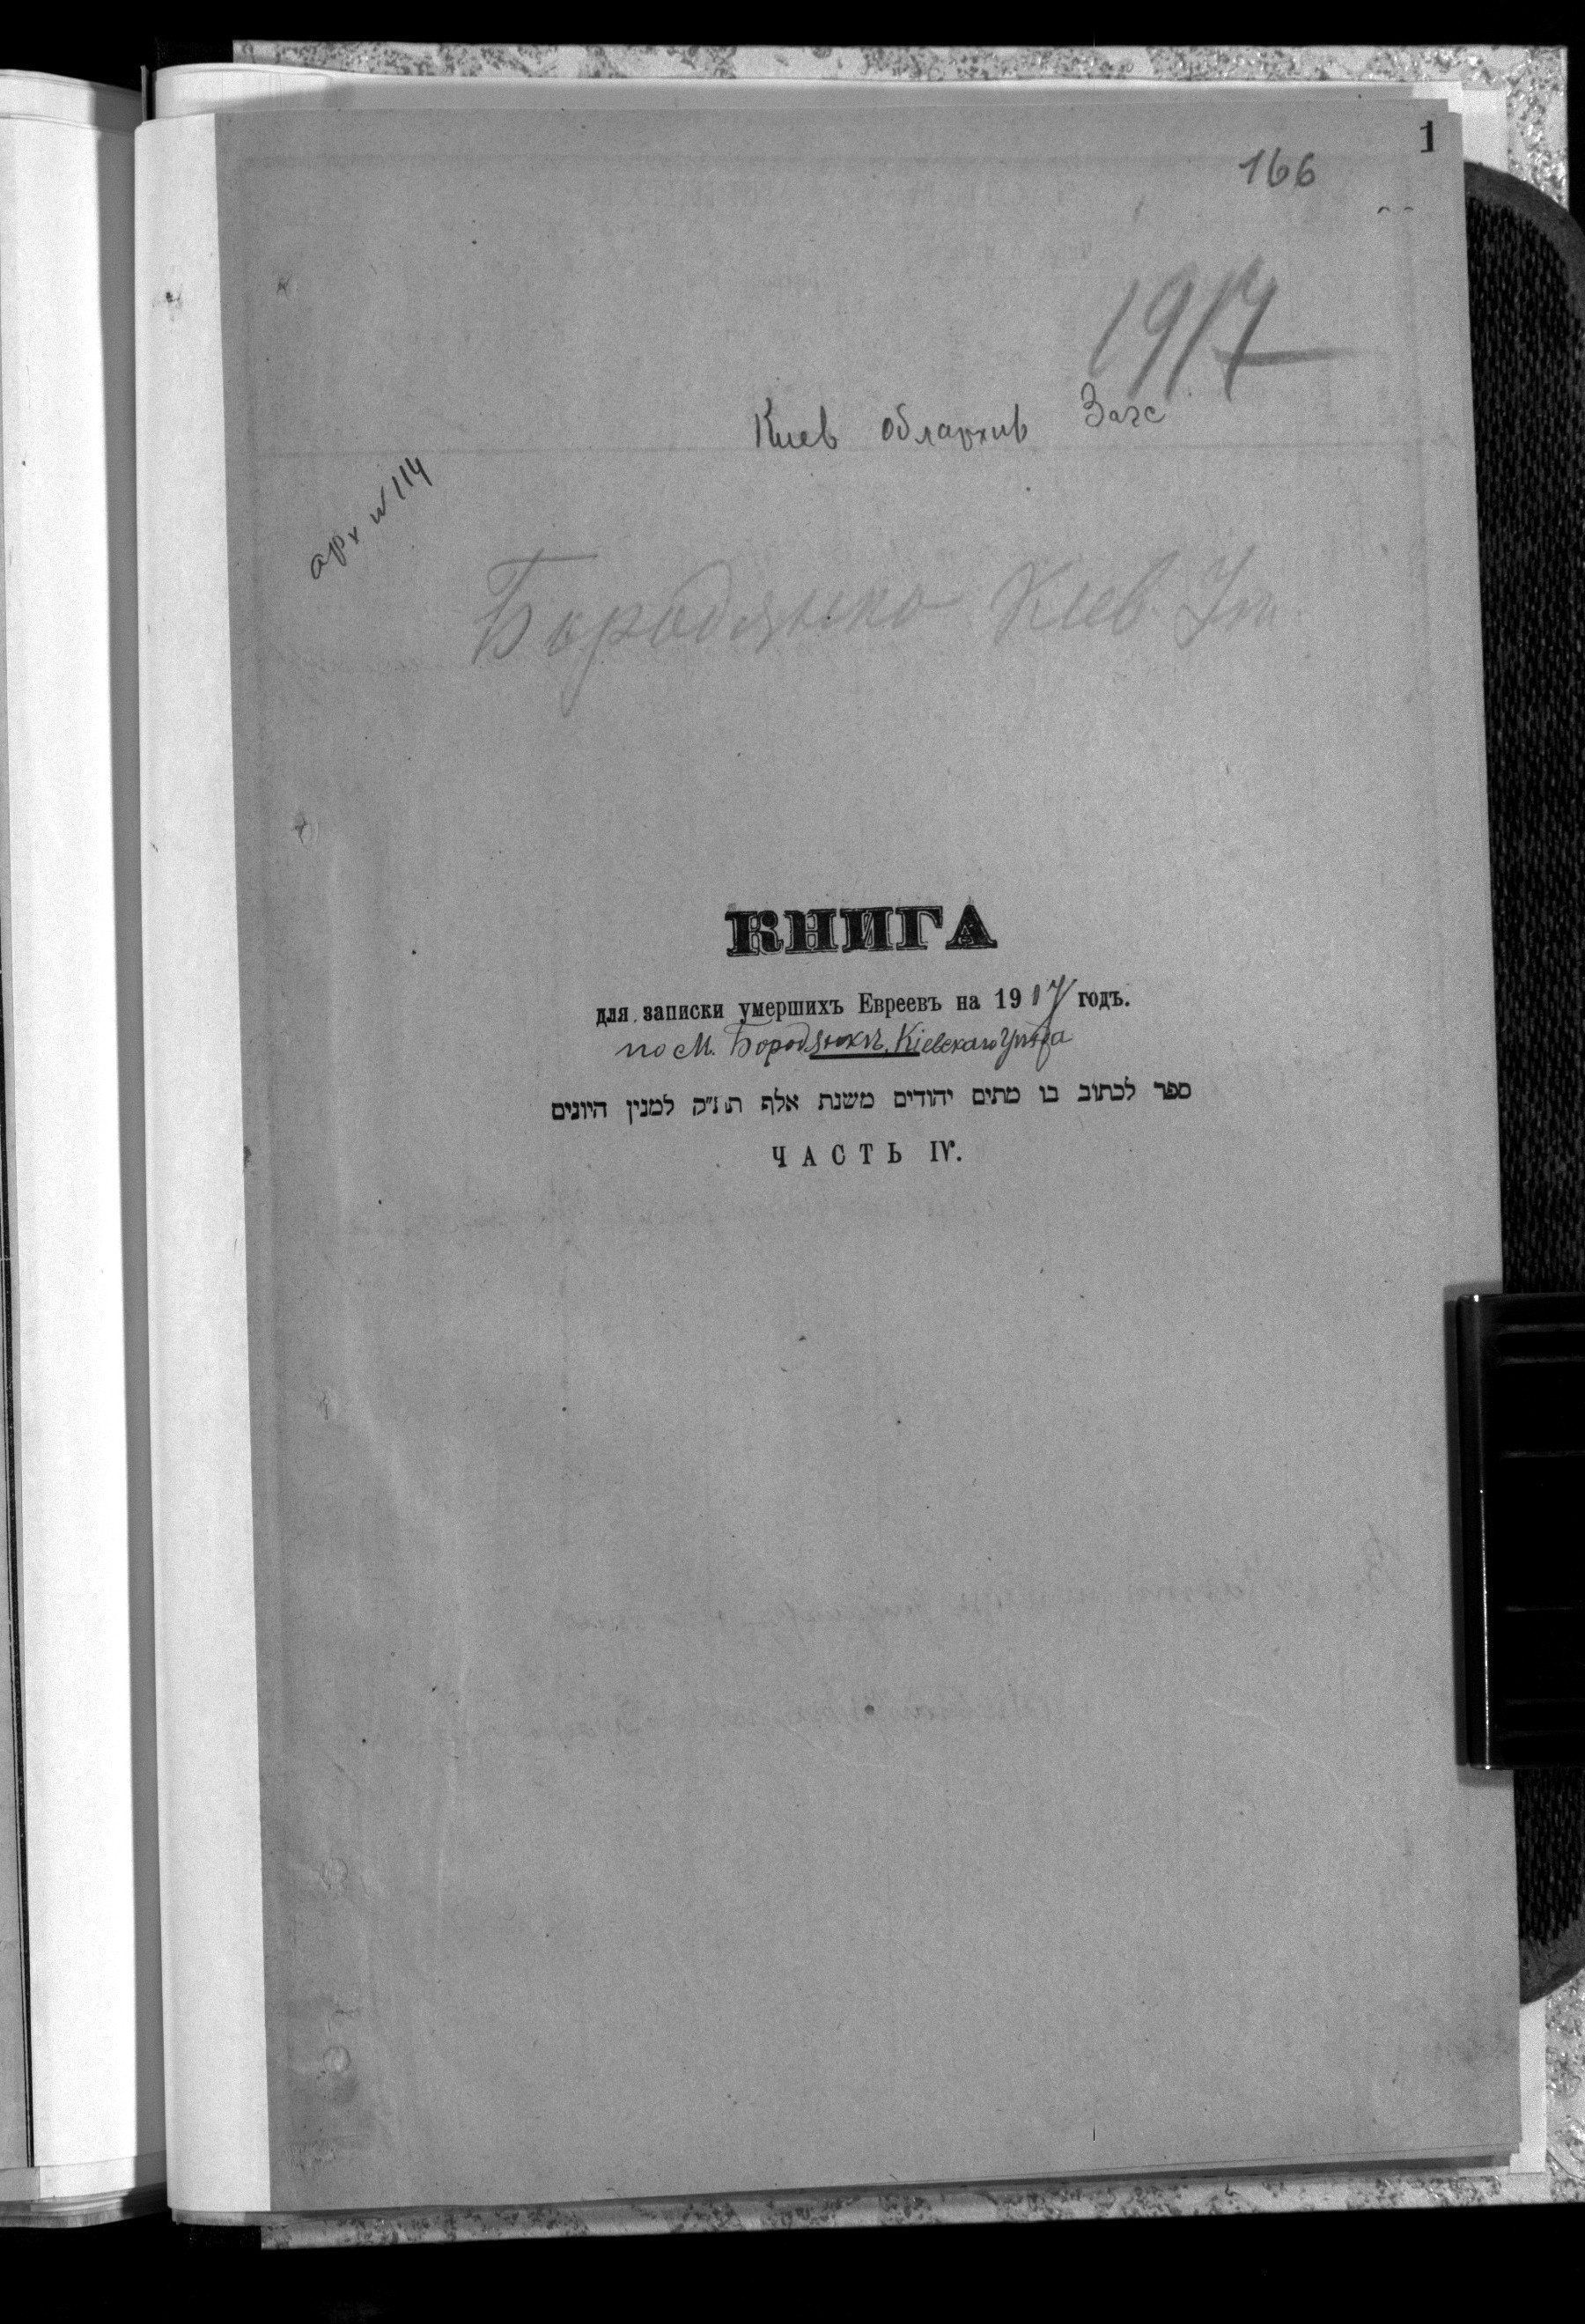 1
166
1917
Киев облархив Загс
арх № 114
Бородянка Кіев. Уѣз.
КНИГА
для записки умершихъ Евреевъ на 1917 годъ.
по М. Бородянкѣ, Кіевскаго уѣзда
ספר לכתוב בו מתים יהודים משנת אלף תת״ק למנין היונים
ЧАСТЬ IV.